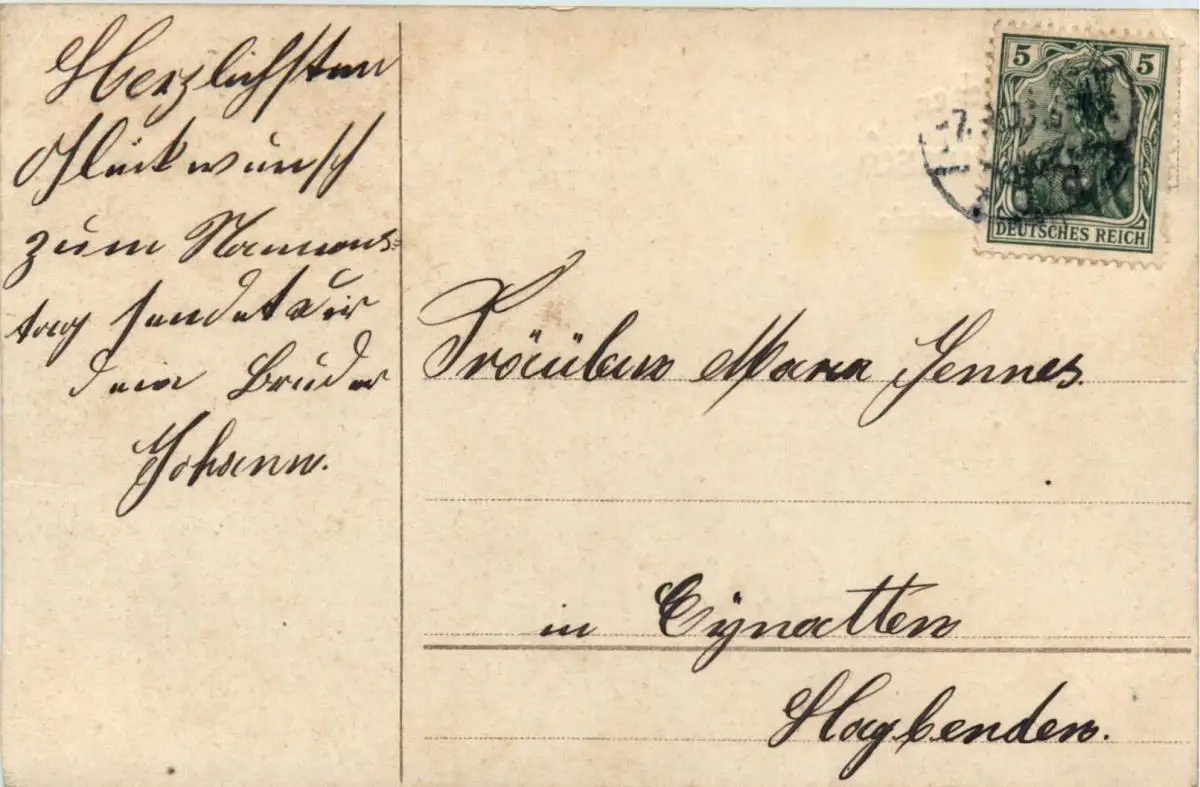 Herzlichsten
Glückwunsch
zum Namens=
tag sendet dir
dein Bruder
Johann.
5 5
DEUTSCHES REICH
Fräulein Maria Jennes
in Eynatten
Hagbenden.